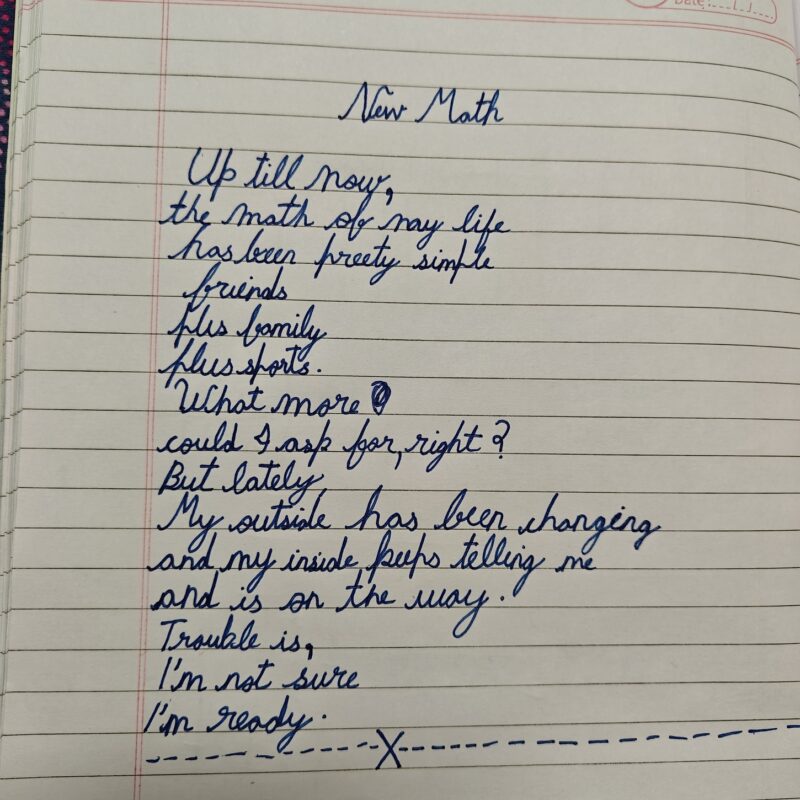 Date:
New Math
Up till now,
the math of may life
has been preety simple
friends
plus family
plus sports.
What more
could I ask for, right?
But lately
My outside has been changing
and my inside keeps telling me
and is on the way.
Trouble is,
I'm not sure
I'm ready.
X